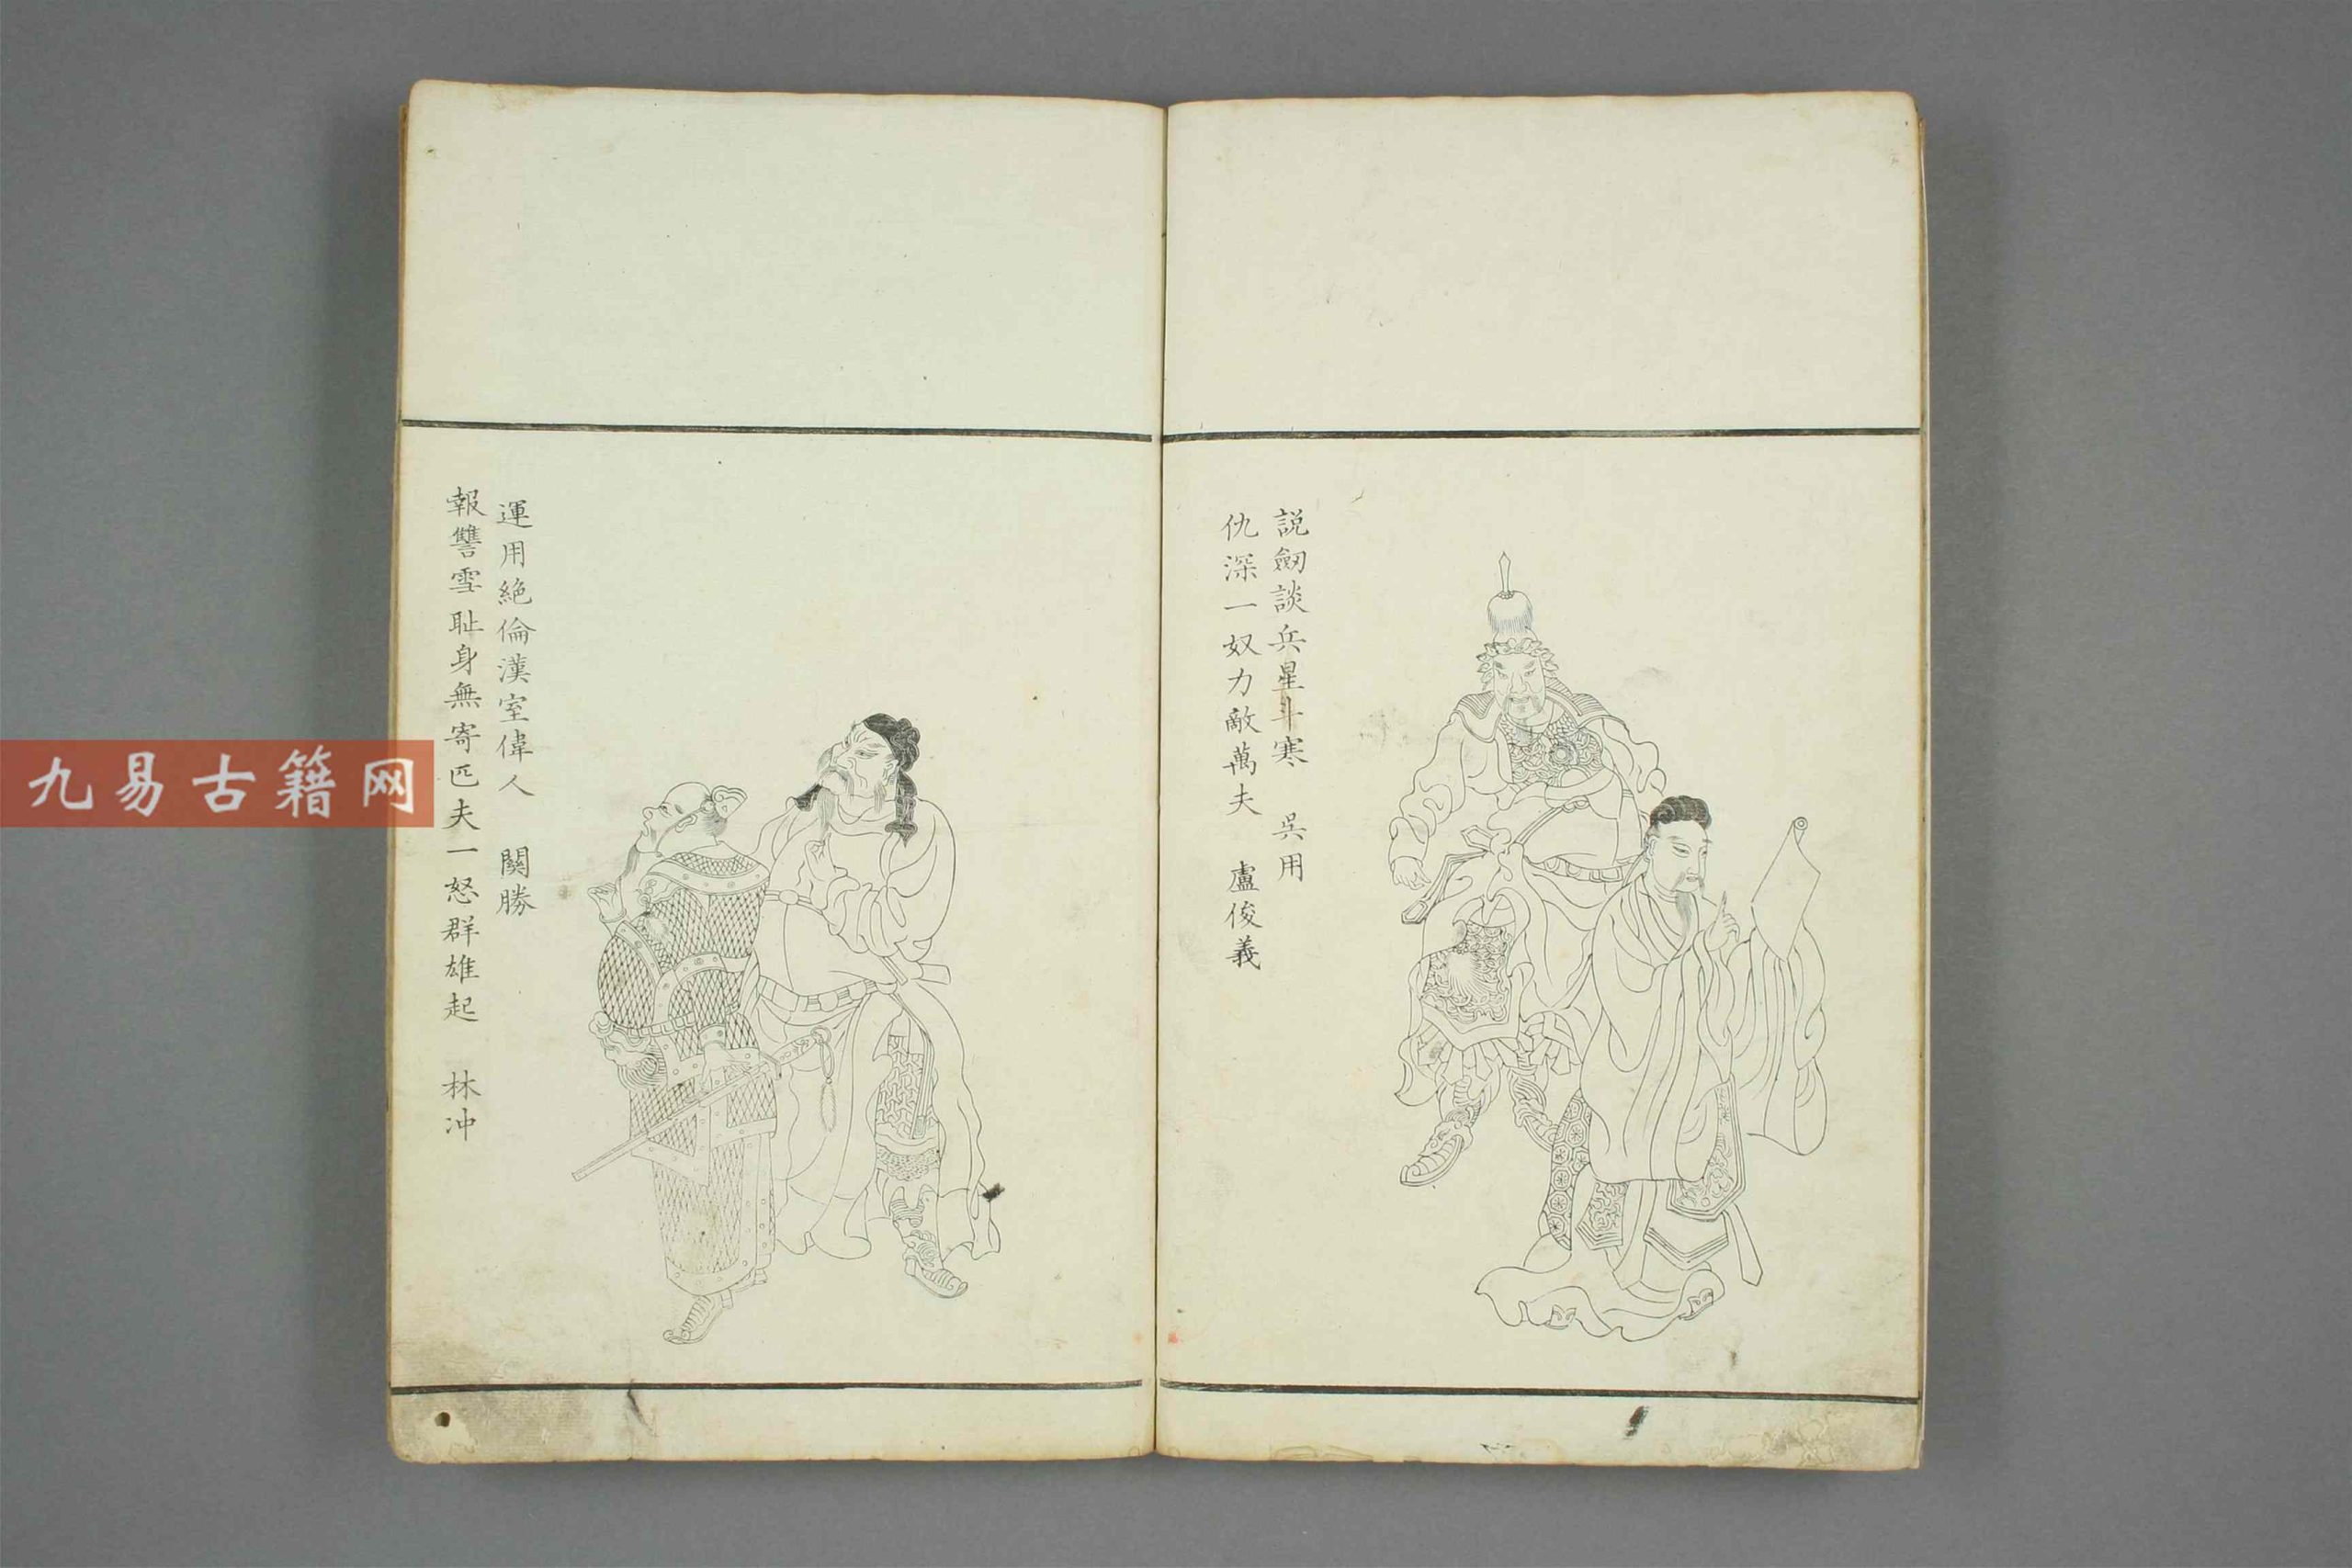 説劒談兵星斗寒 吳用
仇深一奴力敵萬夫 盧俊義
運用絶倫漢室偉人 關勝
報讐雪耻身無寄匹夫一怒群雄起 林冲
九易古籍网